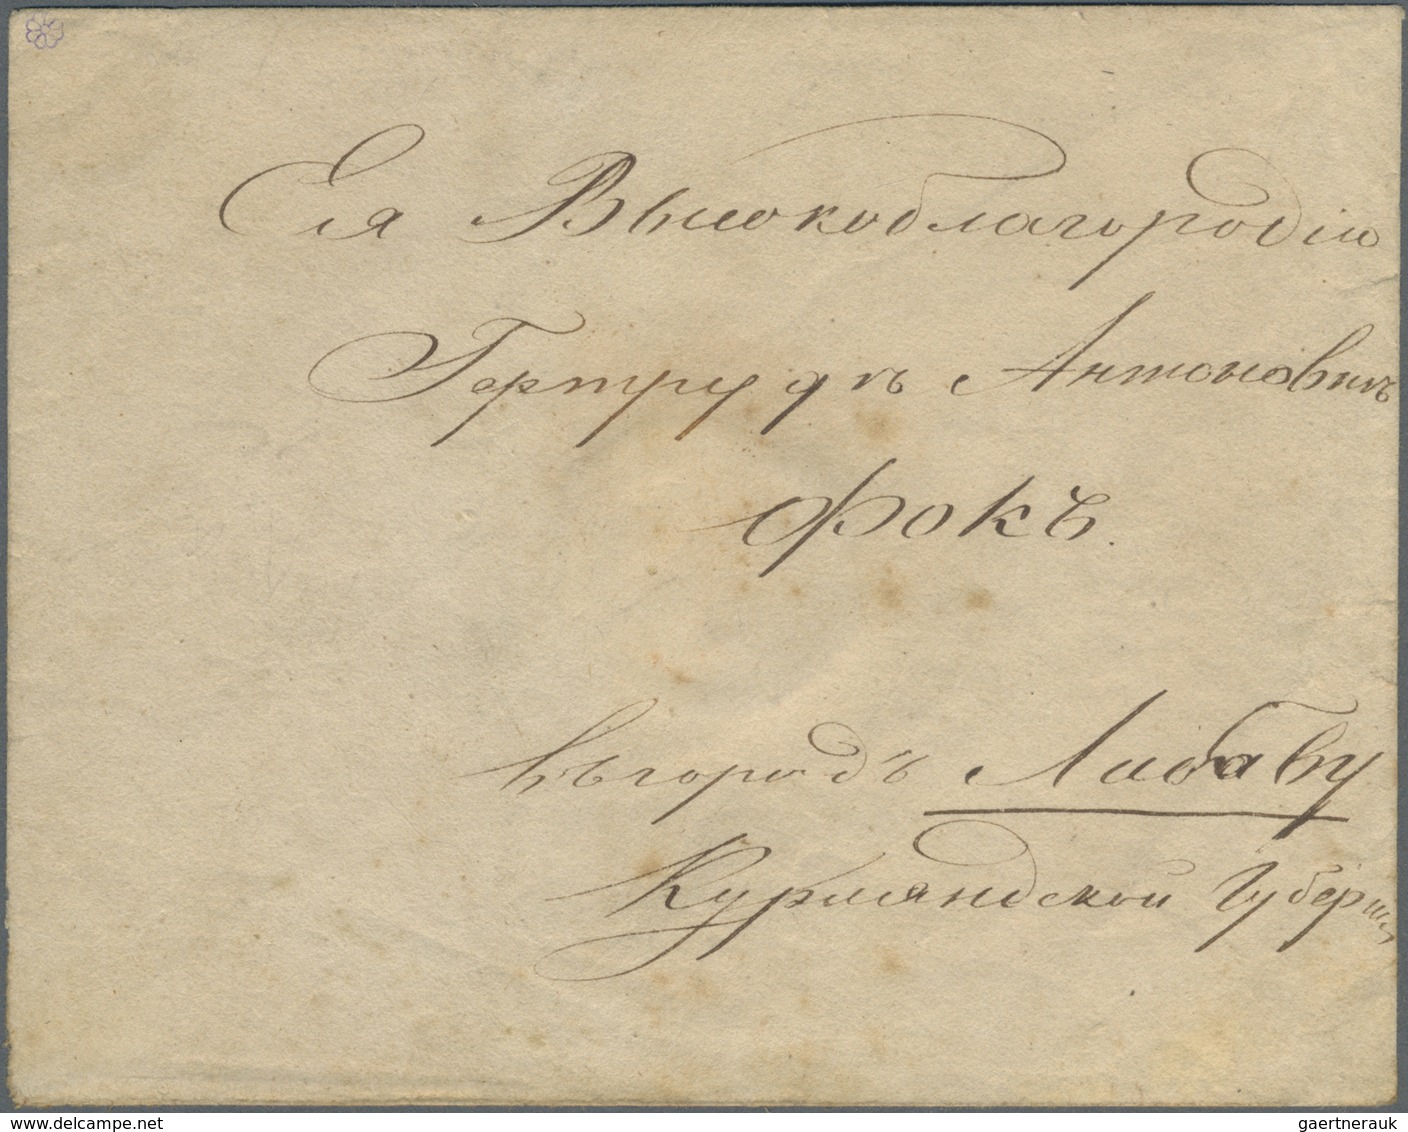 Ея Высокоблагородію
Гертрудѣ Антоновнѣ
Фокъ.
въ городъ Либаву
Курляндской Губерніи
gaertnerauk